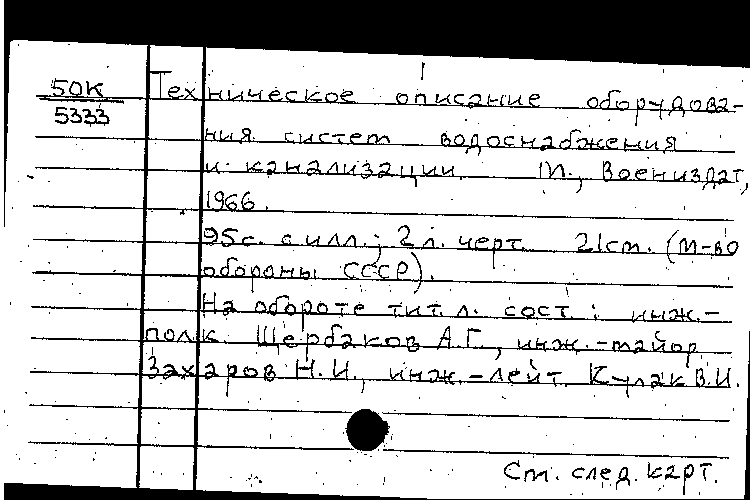 50К Техническое описание оборудова-
5333 ния систем водоснабжения
и канализации М., Воениздат,
1966.
95с. с илл.; 2 л. черт. 21см. (М-во
обороны СССР).
На обороте тит. л. сост.: инж.-
полк. Щербаков А.Г., инж.-майор
Захаров Н.И., инж.-лейт. Кулак В.И.
См. след. карт.